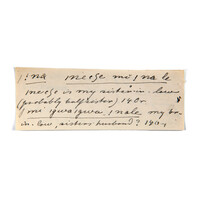 !na meese mi !na le
meese is my sister in law
(probably half sister) 140v
! mi ǀkwaǀkwa, ! nale my bro
in-law, sisters husband? 140v